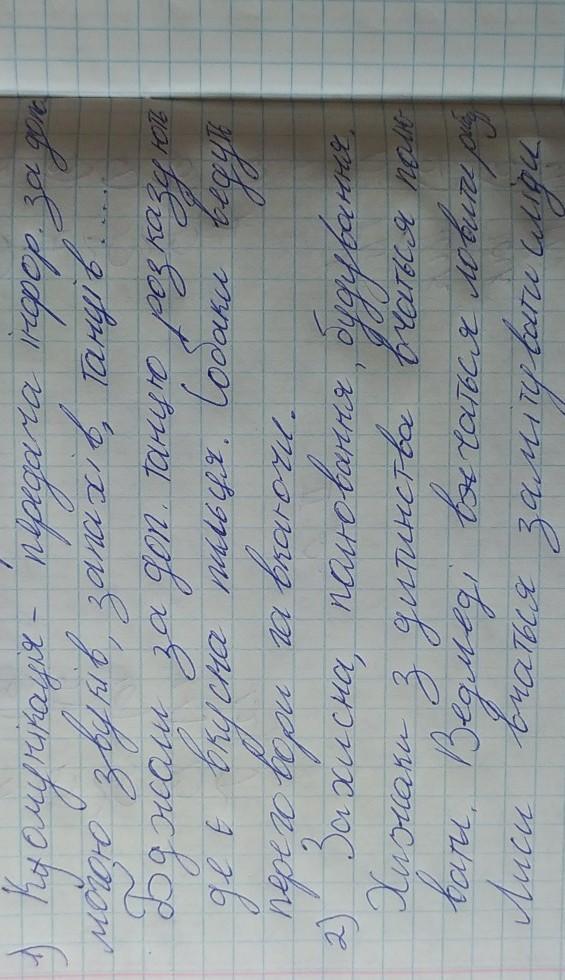 1) Кмомунікація – передача інфор. за допо
могою звуків, запахів, танців ....
Бджоли за доп. танцю розказують
де є вкусна пильця. Собаки ведуть
переговори гавкаючи.
2) Захисна, полювання, будування.
Хижаки з дитинства вчаться полю
вати. Ведмеді вчаться ловити рибу
Лиси вчаться замітувати сліди